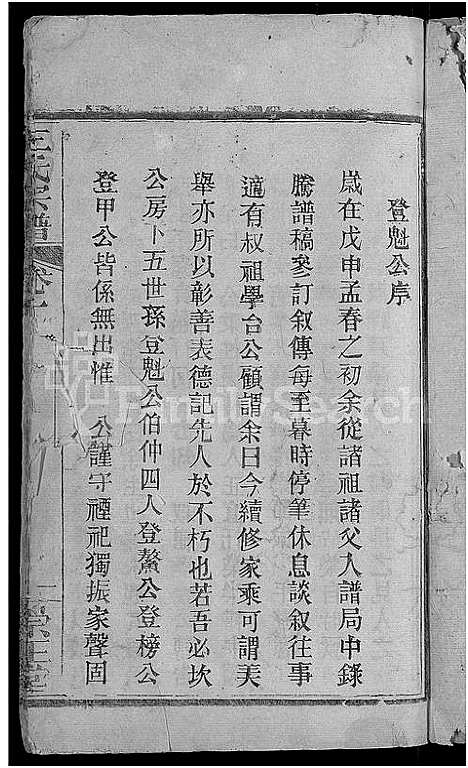 登魁公序
歲在戊申孟春之初余從諸祖諸父入譜局中錄
騰譜稿參訂叙傳每至暮時停筆休息談叙往事
適有叔祖學台公顧謂余曰今續修家乘可謂美
舉亦所以彰善表德記先人於不朽也若吾必坎
公房卜五世孫登魁公伯仲四人登鰲公登榜公
登甲公皆係無出惟 公謹守禋祀獨振家聲固
王氏宗譜
卷十
FamilySearch